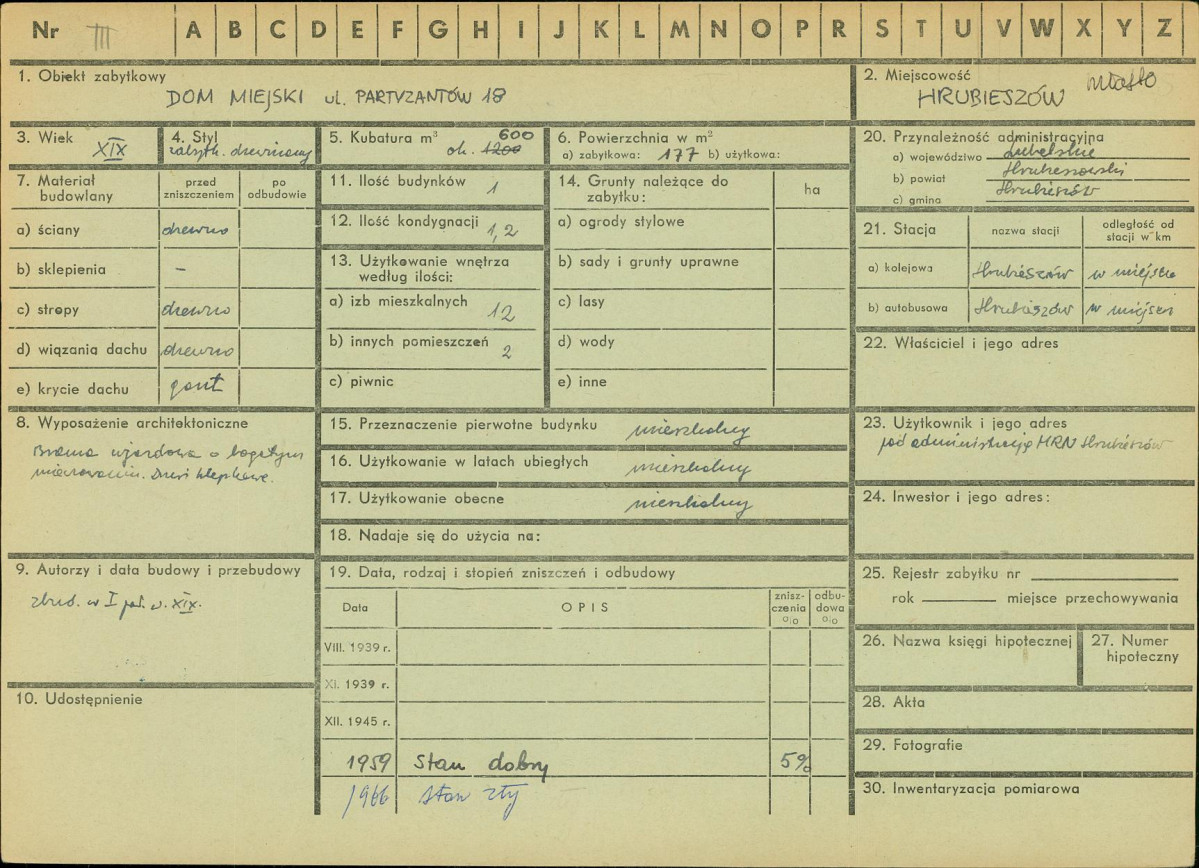 Nr III A B C D E F G H I J K L M N O P R S T U V W X Y Z
1. Obiekt zabytkowy
DOM MIEJSKI ul. PARTYZANTÓW 18
2. Miejscowość
HRUBIESZÓW miasto
3. Wiek
XIX
4. Styl
zabytk. drewniany
5. Kubatura m³ 600
ok. 1200
6. Powierzchnia w m²
a) zabytkowa: 177 b) użytkowa:
20. Przynależność administracyjna
a) województwo Lubelskie
b) powiat Hrubieszowski
c) gmina Hrubieszów
7. Materiał budowlany
przed zniszczeniem
po odbudowie
a) ściany drewno
b) sklepienia –
c) stropy drewno
d) wiązania dachu drewno
e) krycie dachu gont
11. Ilość budynków 1
12. Ilość kondygnacji 1,2
13. Użytkowanie wnętrza
według ilości:
a) izb mieszkalnych 12
b) innych pomieszczeń 2
c) piwnic
14. Grunty należące do
zabytku: ha
a) ogrody stylowe
b) sady i grunty uprawne
c) lasy
d) wody
e) inne
21. Stacja
nazwa stacji
odległość od
stacji w km
a) kolejowa Hrubieszów w miejscu
b) autobusowa Hrubieszów w miejscu
22. Właściciel i jego adres
8. Wyposażenie architektoniczne
Brama wjazdowa o bogatym
Drzwi klepkowe.
15. Przeznaczenie pierwotne budynku mieszkalny
16. Użytkowanie w latach ubiegłych mieszkalny
17. Użytkowanie obecne mieszkalny
18. Nadaje się do użycia na:
23. Użytkownik i jego adres
pod administracją MRN Hrubieszów
24. Inwestor i jego adres:
9. Autorzy i data budowy i przebudowy
zbud. w I poł. w. XIX.
10. Udostępnienie
19. Data, rodzaj i stopień zniszczeń i odbudowy
Data OPIS
znisz-
czenia
o/o
odbu-
dowa
o/o
VIII. 1939 r.
XI. 1939 r.
XII. 1945 r.
1959 Stan dobry 5%
1966 stan zły
25. Rejestr zabytku nr
rok miejsce przechowywania
26. Nazwa księgi hipotecznej
27. Numer
hipoteczny
28. Akta
29. Fotografie
30. Inwentaryzacja pomiarowa